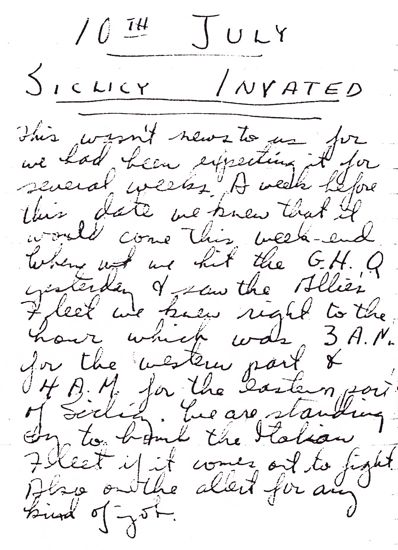 10TH JULY
SICLICY INVATED
This wasn't news to us for
we had been expecting it for
several weeks. A week before
this date we knew that it
would come this week-end
When we hit the G.H.Q
yesterday & saw the Allies
Fleet we knew right to the
hour which was 3 A.M.
for the western part &
4 A.M for the eastern part
of Siclicy. We are standing
by to bomb the Italian
Fleet if it comes out to fight
Also on the alert for any
kind of job.